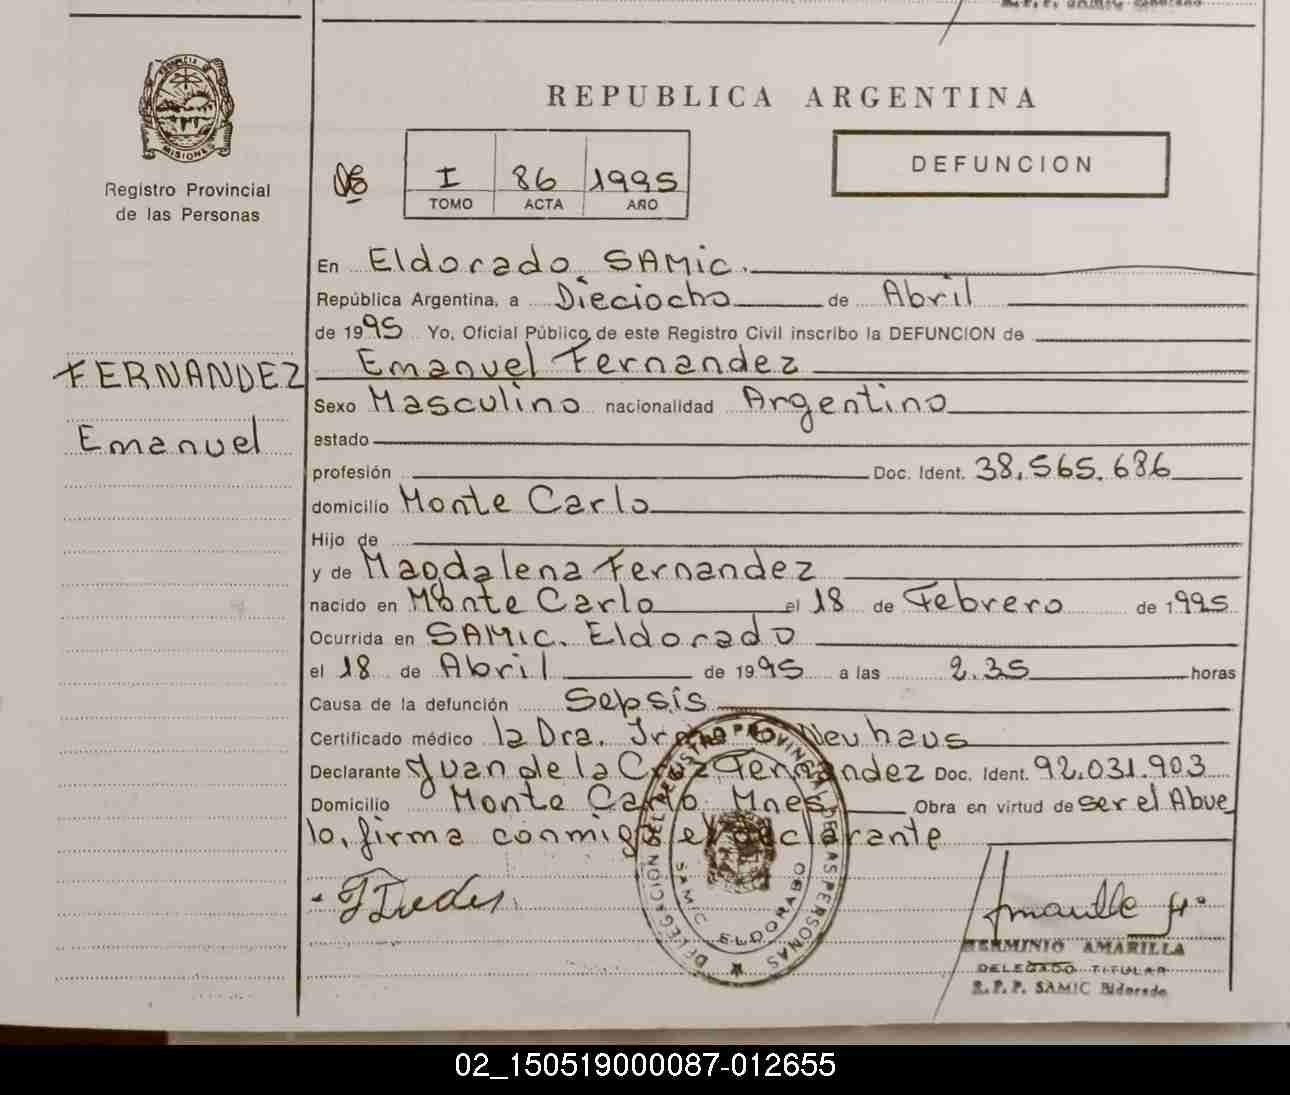 REPUBLICA ARGENTINA
PROVINCIA DE MISIONES
Registro Provincial
de las Personas
I 86 1995
TOMO ACTA AÑO
DEFUNCION
En Eldorado, SAMic.
República Argentina, a Dieciocho de Abril
de 1995 Yo, Oficial Público de este Registro Civil inscribo la DEFUNCION de
Emanuel Fernandez
FERNANDEZ
Emanuel
Sexo Masculino nacionalidad Argentino
estado
profesión Doc. Ident. 38.565.686
domicilio Monte Carlo
Hijo de
y de Magdalena Fernandez
nacido en Monte Carlo el 18 de Febrero de 1995
Ocurrida en SAMic. Eldorado
el 18 de Abril de 1995 a las 2.35 horas
Causa de la defunción Sepsis
Certificado médico la Dra. Neuhaus
Declarante Juan de la Cruz Fernandez Doc. Ident. 92.031.903
Domicilio Monte Carlo Mnes Obra en virtud de ser el Abue
lo, firma conmigo el declarante
DELEGACION DEL REGISTRO PROVINCIAL DE LAS PERSONAS
SAMIC ELDORADO
HERMINIO AMARILLA
DELEGADO TITULAR
R.P.P. SAMIC Eldorado
02_150519000087-012655